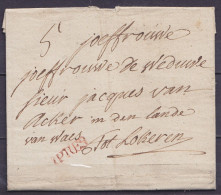 joeffrouwe
joeffrouwe de weduwe
sieur jacques van
Acker in den lande
van waes
tot Lokeren